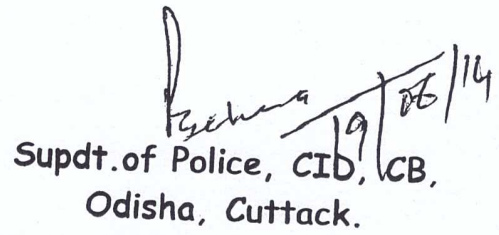 19/06/14
Supdt.of Police, CID, CB,
Odisha, Cuttack.